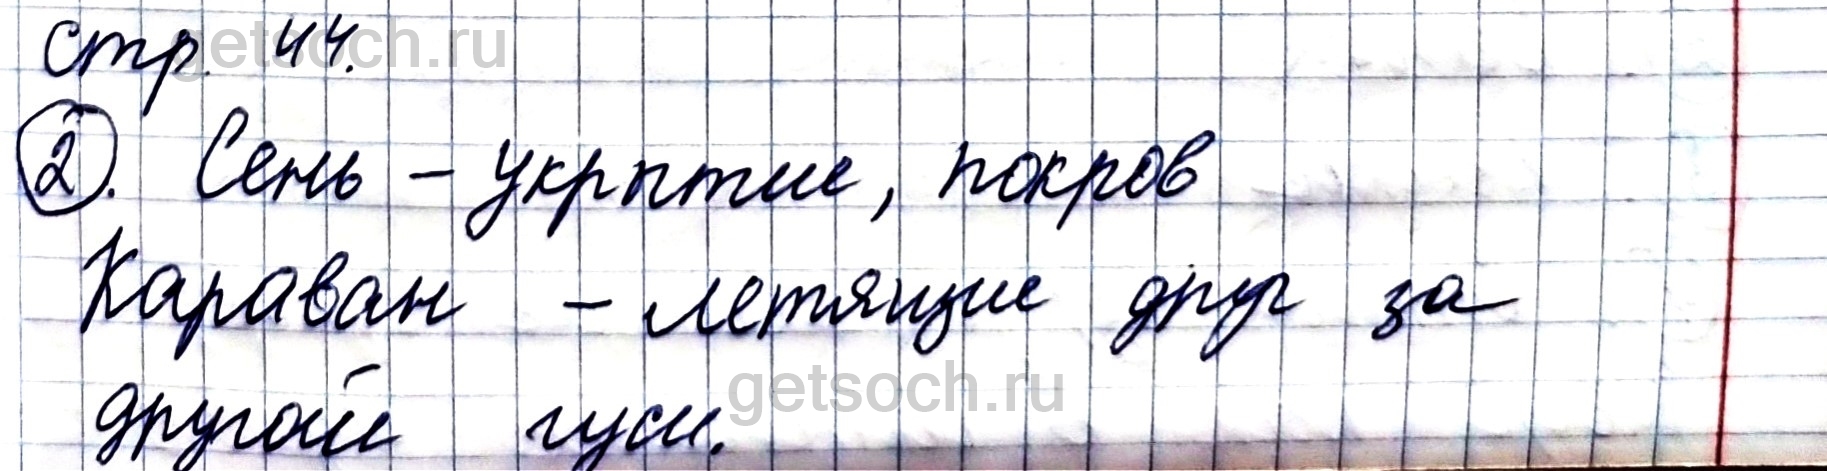 стр. 44.
2. Сень – укрытие, покров
Караван – летящие друг за
другой гуси.
getsoch.ru
getsoch.ru